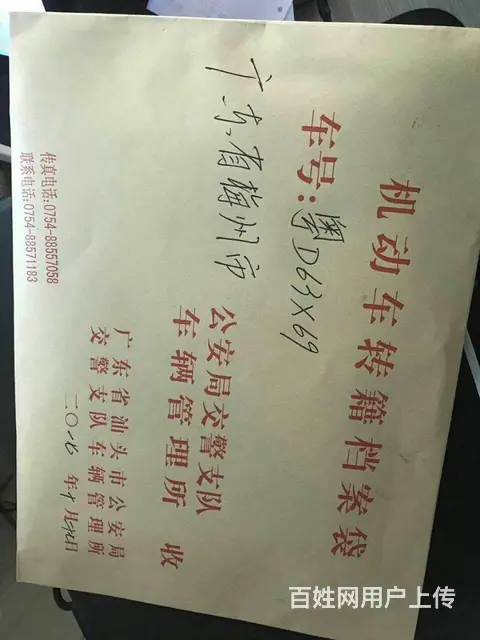 机动车转籍档案袋
车号:粤D63X69
广东省梅州市
公安局交警支队
车辆管理所 收
广东省汕头市公安局
交警支队车辆管理所
二〇一七年十月 日
传真电话:0754-88557058
联系电话:0754-88571183
百姓网用户上传